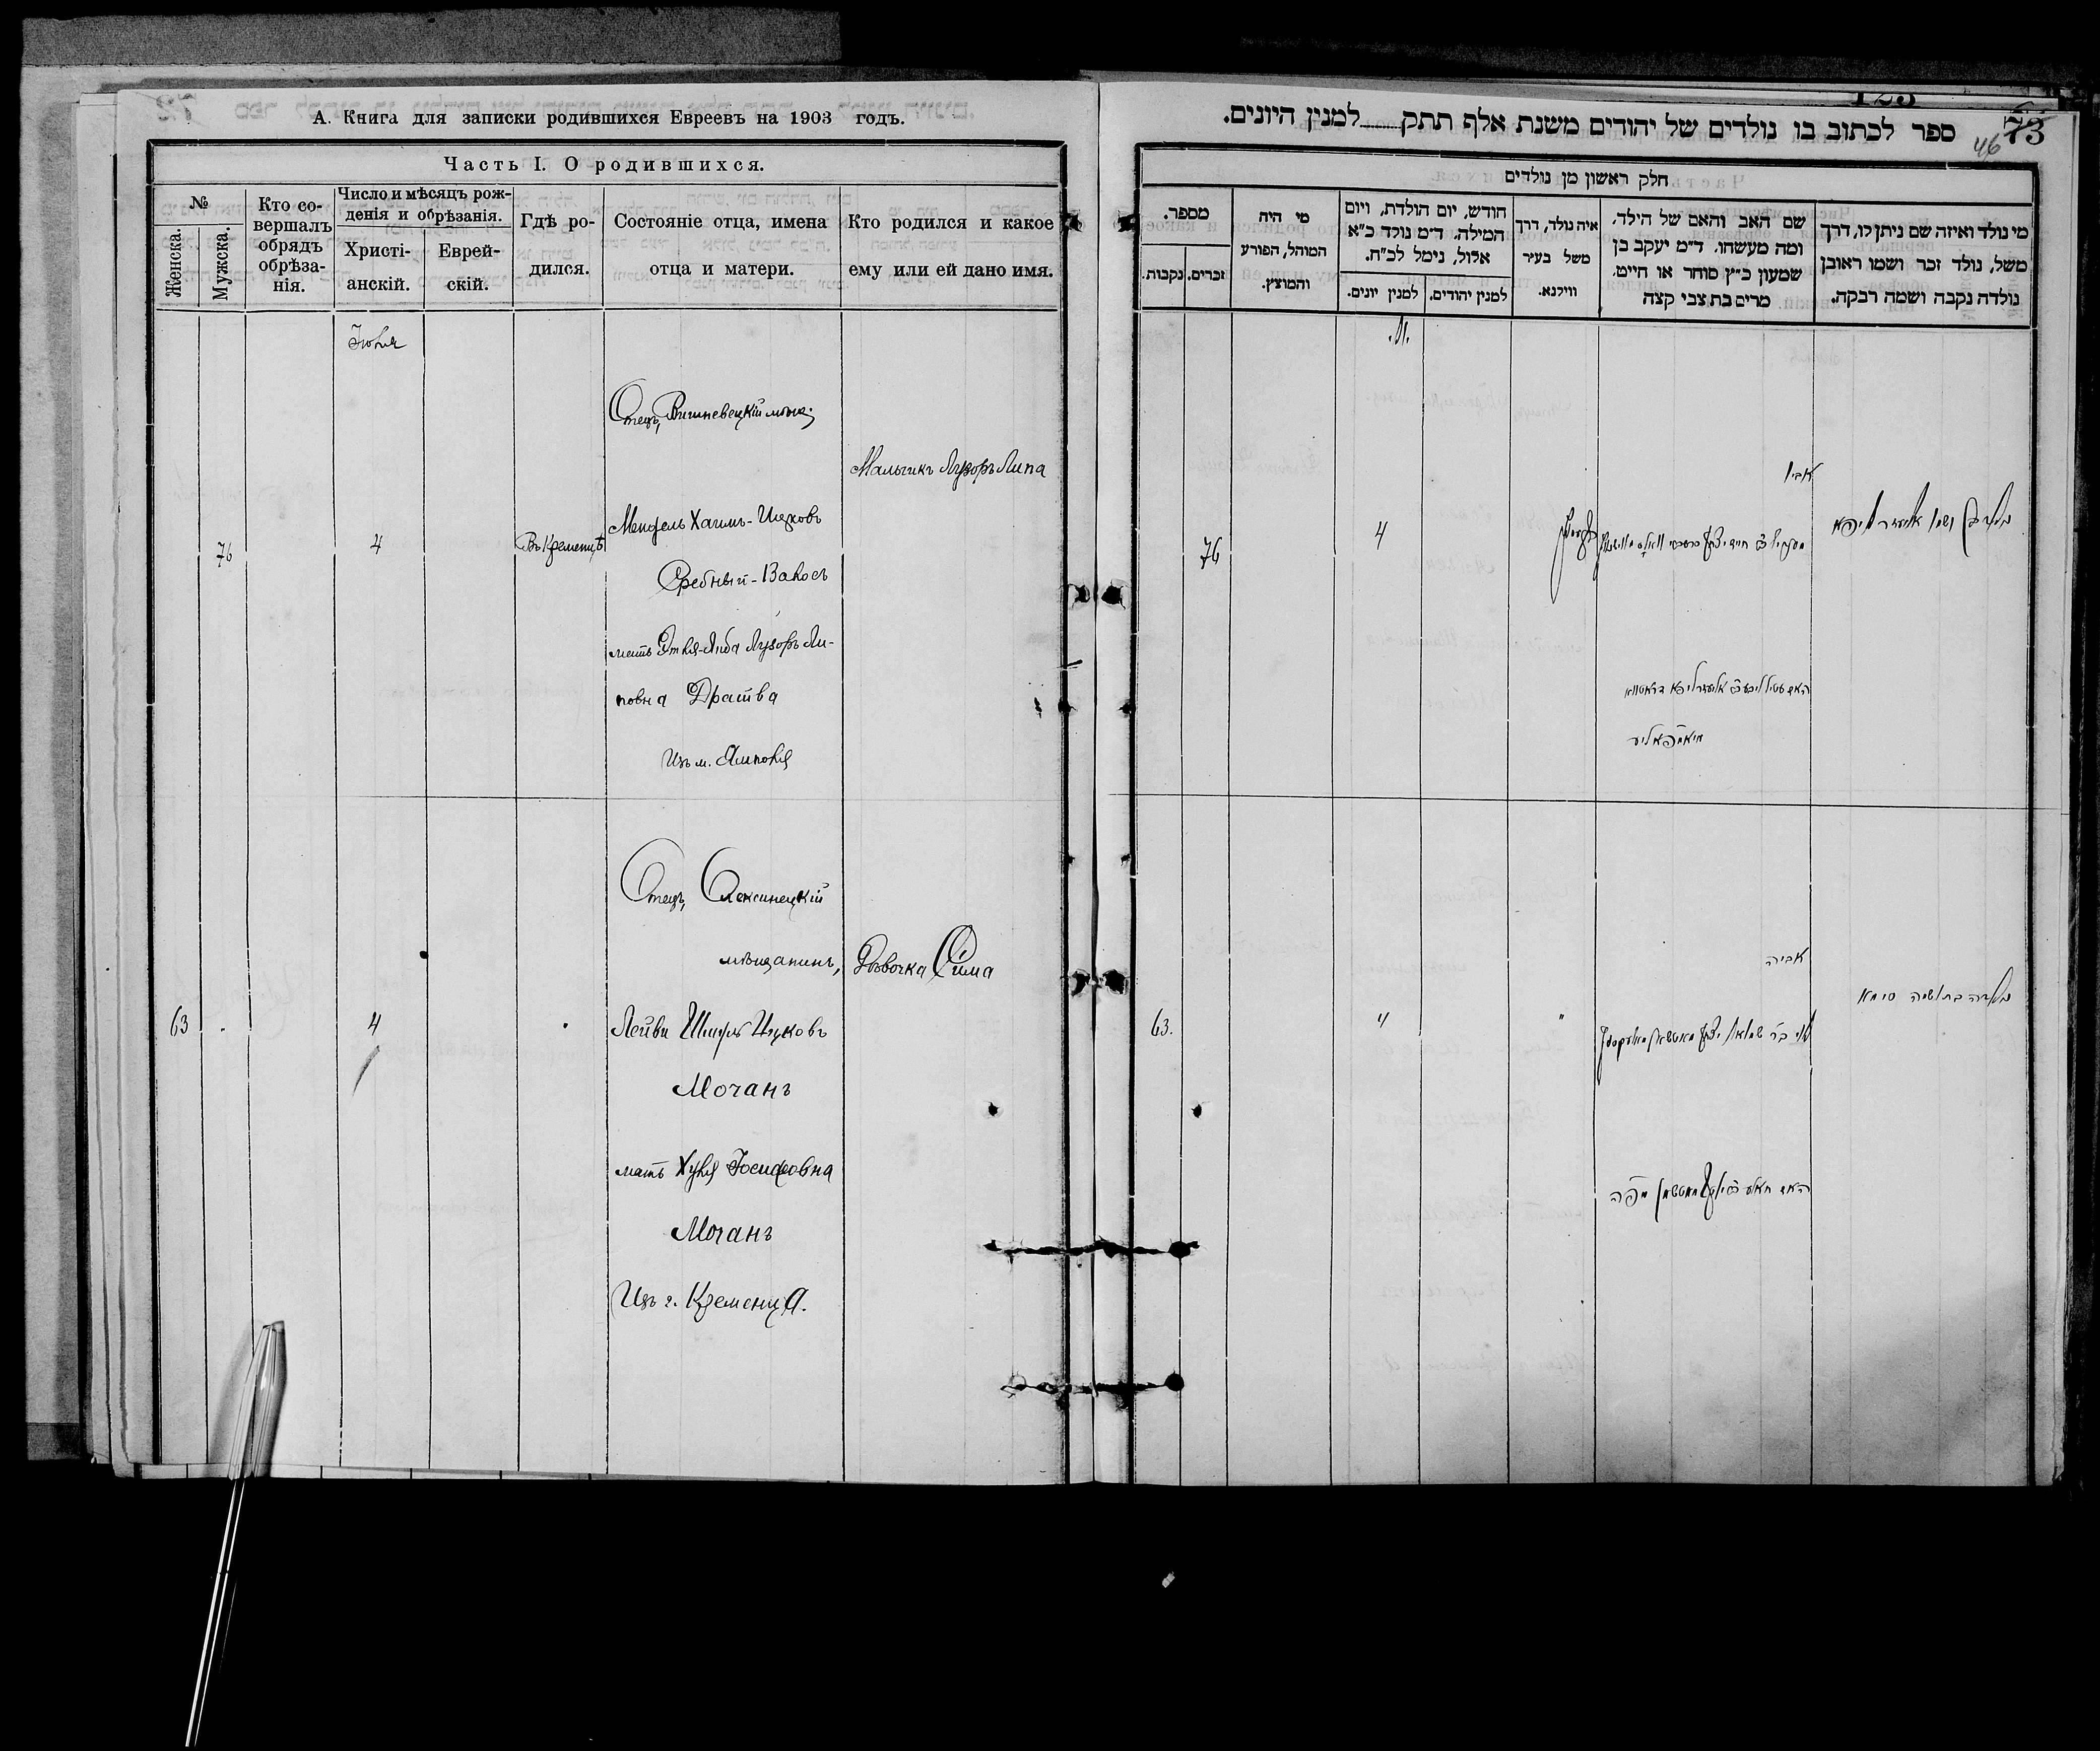 А. Книга для записки родившихся Евреевъ на 1903 годъ.
Часть I. О родившихся.
№
Женска.
Мужска.
Кто со-
вершалъ
обрядъ
обрѣза-
нія.
Число и мѣсяцъ рож-
денія и обрѣзанія.
Христі-
анскій.
Еврей-
скій.
Гдѣ ро-
дился.
Состояніе отца, имена
отца и матери.
Кто родился и какое
ему или ей дано имя.
Іюля
76
4
Въ Кременцѣ
Отецъ, Вишневецкій мѣщ.
Мендель Хаимъ-Ицковъ
Средный-Вакосъ
мать Этля-Люба Лузоръ Ли-
повна Дратва
Изъ м. Ямполя
Мальчикъ Лузоръ Липа
63
4
Отецъ, Олексинецкій
мѣщанинъ,
Лейви Шмуль Ицковъ
Мочанъ
мать Хуля Іосифовна
Мочанъ
Изъ г. Кременца.
Дѣвочка Сима
ספר לכתוב בו נולדים של יהודים משנת אלף תתק למנין היונים.
73
46
חלק ראשון מן נולדים
מי נולד ואיזה שם ניתן לו, דרך
משל, נולד זכר ושמו ראובן
נולדה נקבה ושמה רבקה.
שם האב והאם של הילד.
ומה מעשהו. ד"מ יעקב בן
שמעון כ"ץ סוחר או חייט.
מרים בת צבי קצה
איה נולד, דרך
משל בעיר
ווילנא.
חודש, יום הולדת, ויום
המילה. ד"מ נולד כ"א
אלול, נימל לכ"ח.
למנין יהודים.
למנין יונים.
מי היה
המוהל, הפורע
והמוצץ.
מספר.
זכרים.
נקבות.
אביו
76
4
האם עטיל ליבע אליעזר ליפא דראטווא
אביה
63.
4